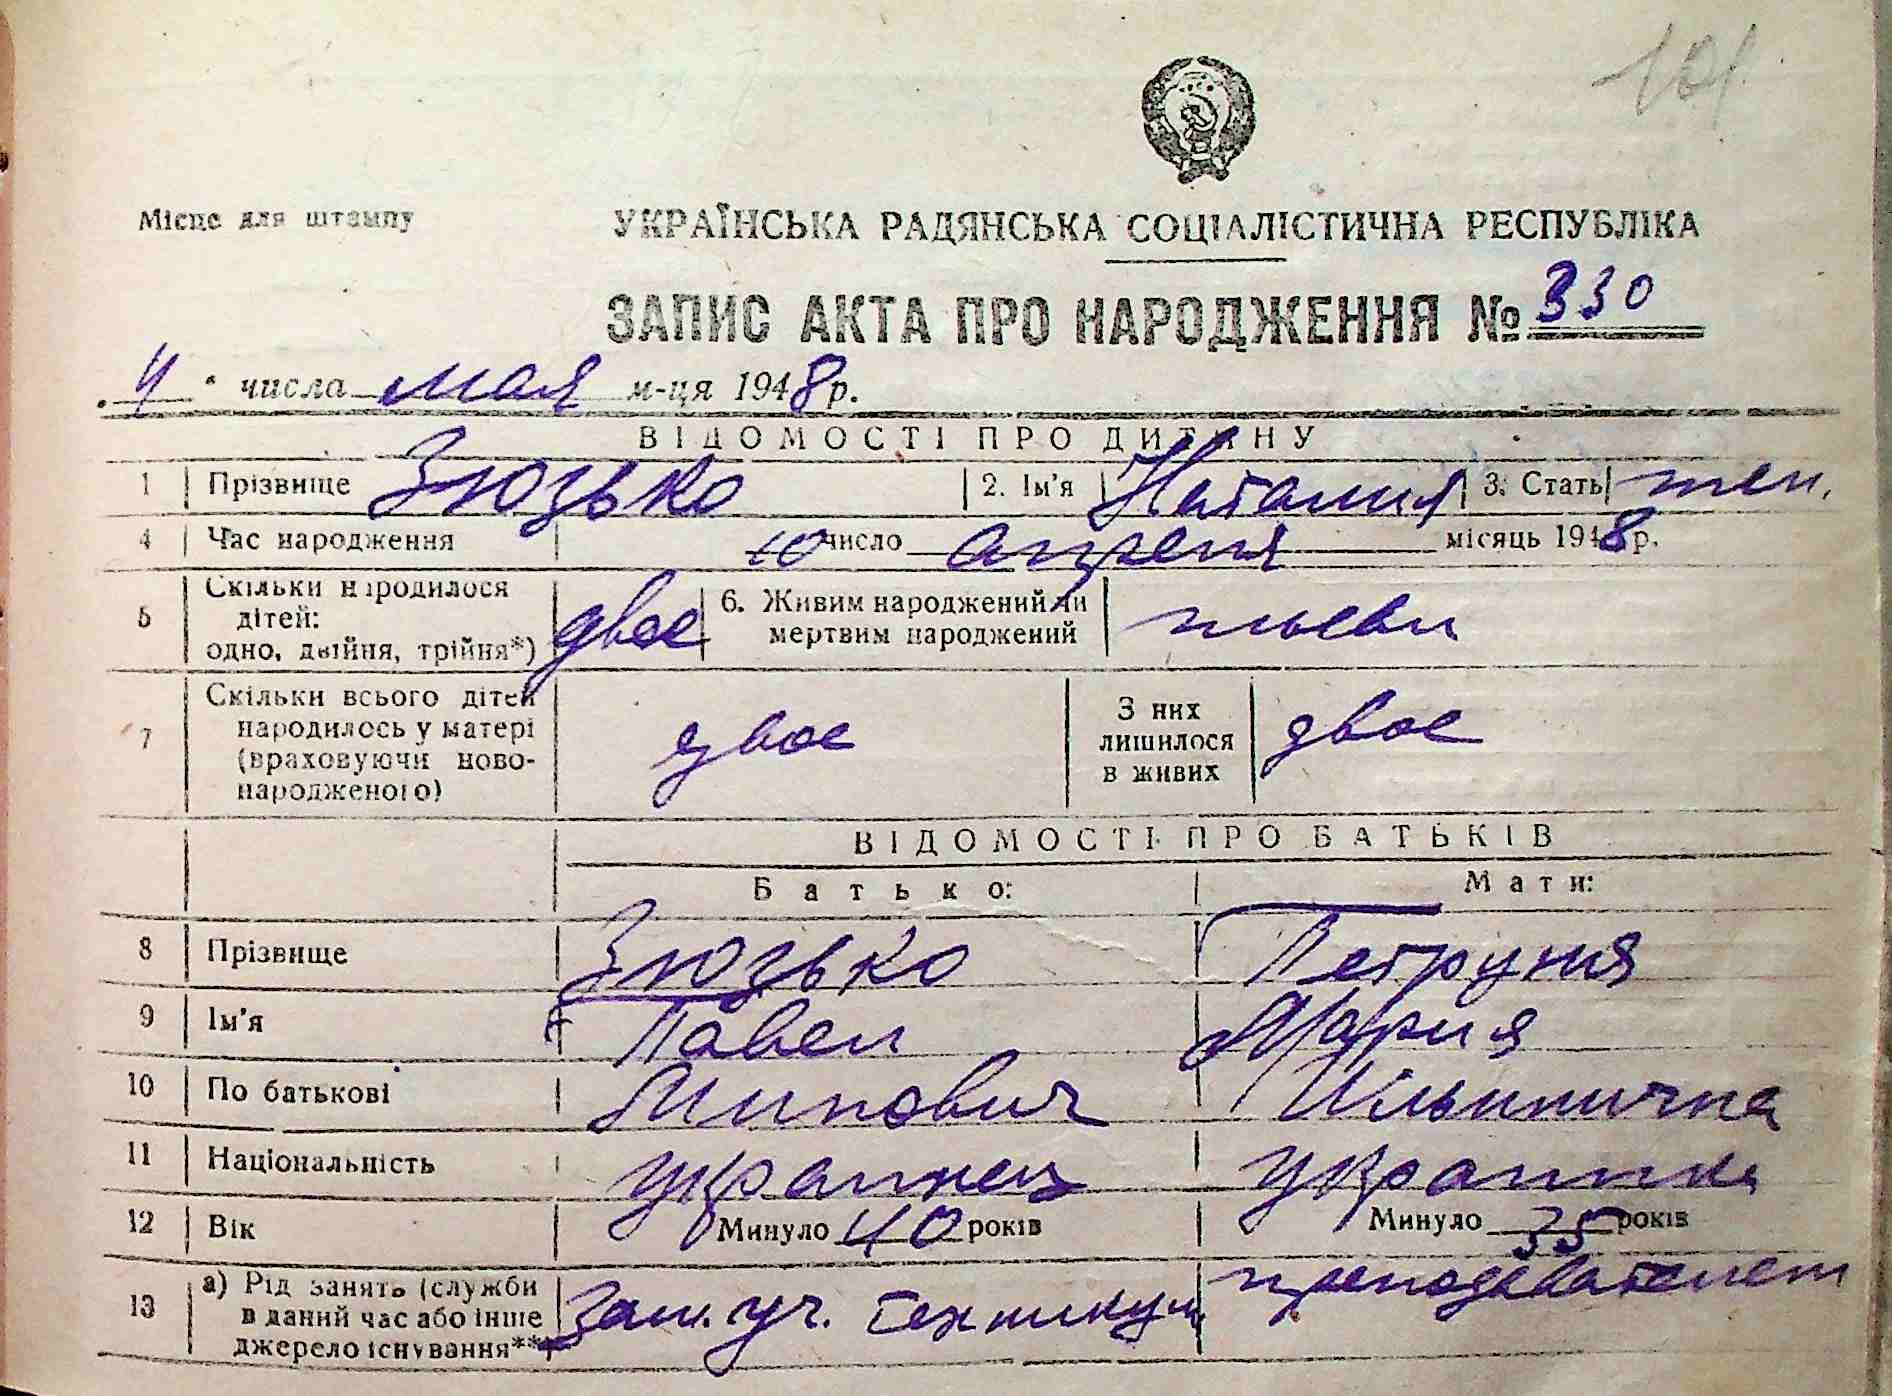 101
Місце для штампу
УКРАЇНСЬКА РАДЯНСЬКА СОЦІАЛІСТИЧНА РЕСПУБЛІКА
ЗАПИС АКТА ПРО НАРОДЖЕННЯ № 330
"4" числа мая м-ця 1948 р.
ВІДОМОСТІ ПРО ДИТИНУ
1 Прізвище Зюзько 2. Ім'я Наталия 3. Стать жен.
4 Час народження 10 число апреля місяць 1948 р.
5 Скільки народилося
дітей:
одно, двійня, трійня*) двое 6. Живим народжений чи
мертвим народжений
7 Скільки всього дітей
народилось у матері
(враховуючи ново-
народженого) двое З них
лишилося
в живих двое
ВІДОМОСТІ ПРО БАТЬКІВ
Батько: Мати:
8 Прізвище Зюзько Петруня
9 Ім'я Павел Мария
10 По батькові Ильинична
11 Національність украинец украинка
12 Вік Минуло 40 років Минуло 35 років
13 а) Рід занять (служби
в даний час або інше
джерело існування**) Зам. уч. техникум